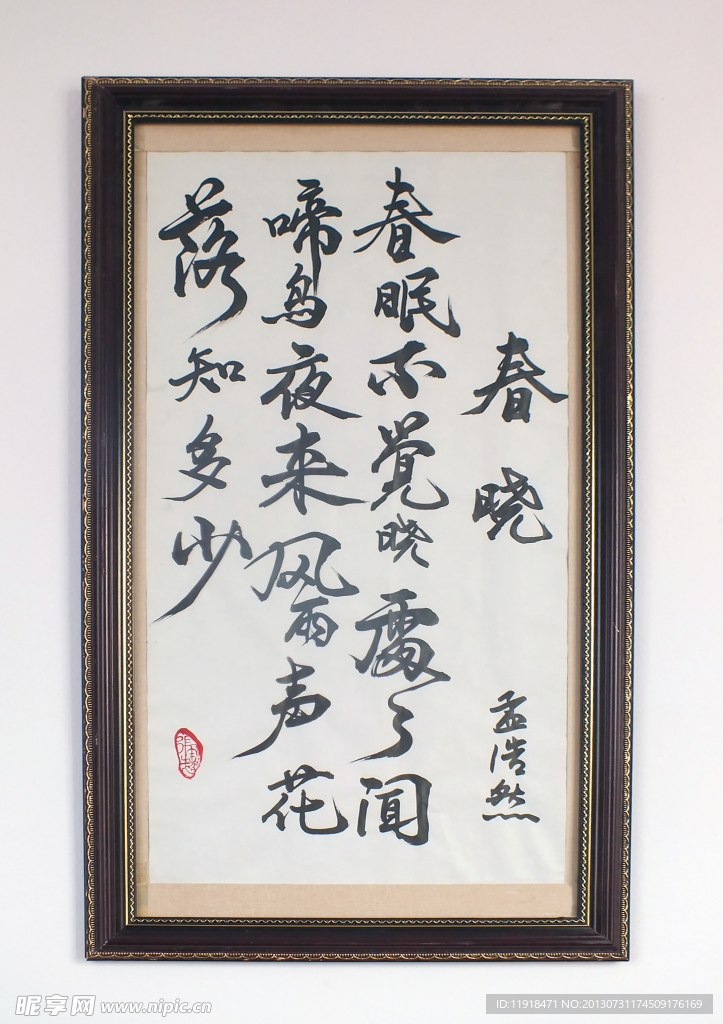 春晓
孟浩然
春眠不觉晓处々闻
啼鸟夜来风雨声花
落知多少
昵享网 www.nipic.cn
ID:11918471 NO:20130731174509176169